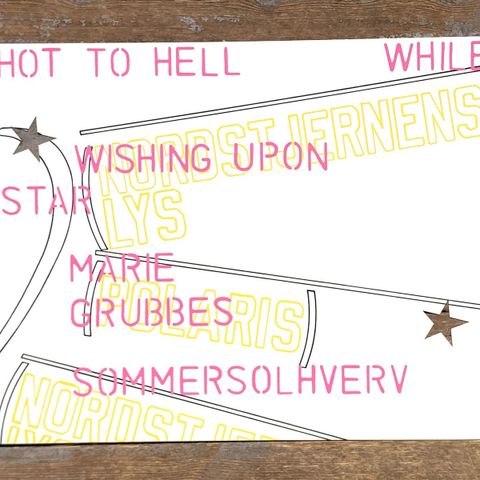 HOT TO HELL WHILE
WISHING UPON
STAR
NORDSTJERNENS
LYS
MARIE
GRUBBES
POLARIS
SOMMERSOLHVERV